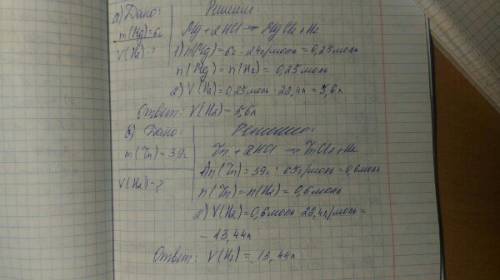 а) Дано: Решение
m(Mg)=6г Mg+2HCl → MgCl2+H2
V(H2)-? 1) n(Mg)=6г : 24г/моль=0,25моль
n(Mg)=n(H2)=0,25моль
2) V(H2)=0,25моль · 22,4л=5,6л
Ответ: V(H2)-5,6л
б) Дано: Решение:
m(Zn)=39г Zn+2HCl → ZnCl2+H2
1n(Zn)=39г : 65г/моль=0,6моль
V(H2)=? n(Zn)=n(H2)=0,6моль
2) V(H2)=0,6моль · 22,4л/моль=
- 13,44л
Ответ: V(H2)=13,44л